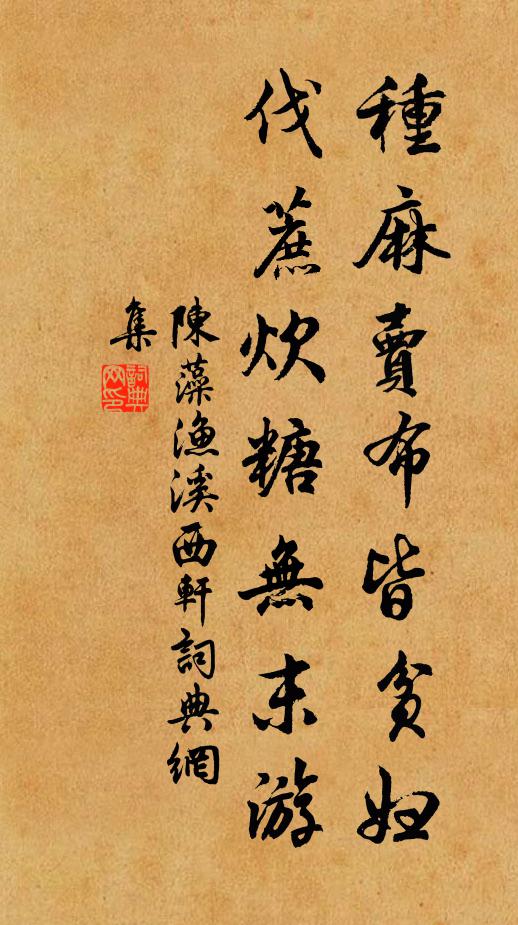 種麻賣布皆貧婦
伐蔗炊糖無末游
陳藻漁溪西軒詞典網
集
詞典网印